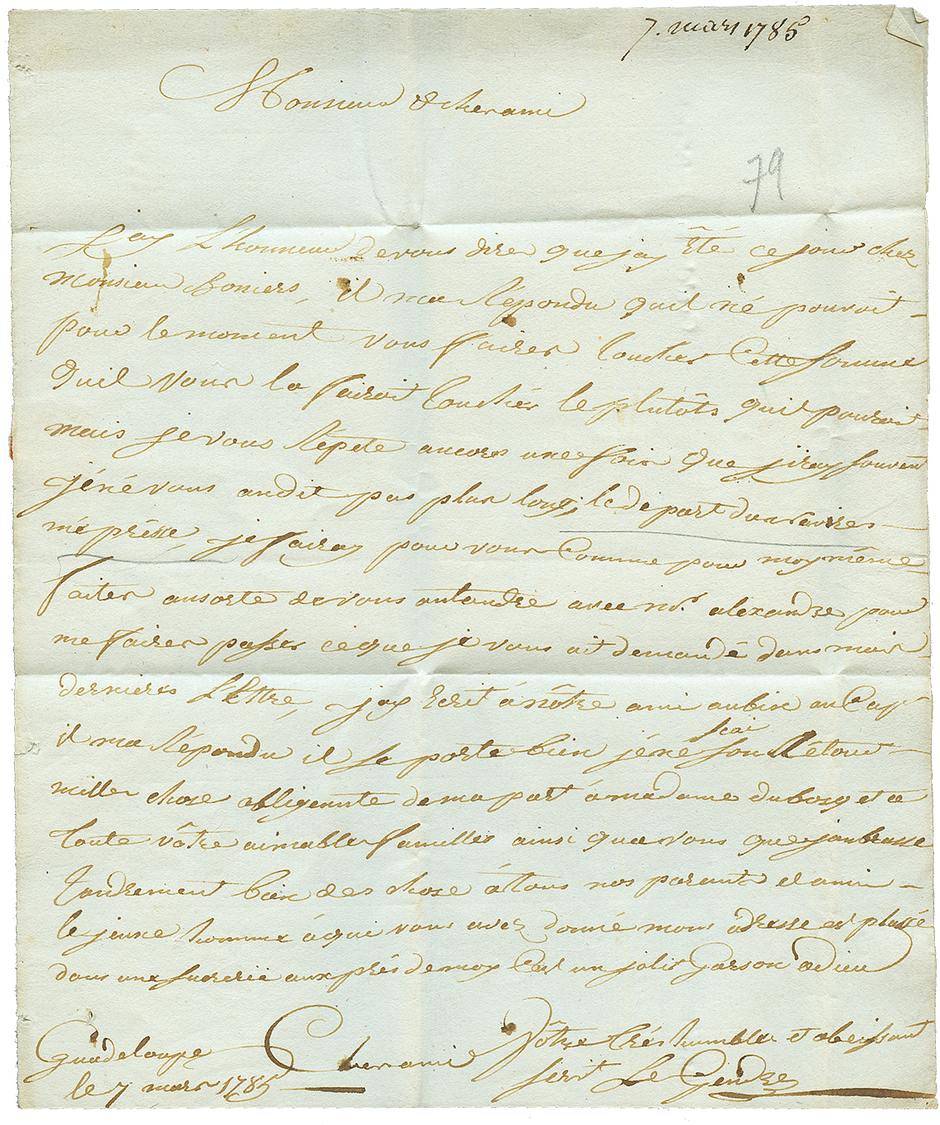 7. mars 1785
Monsieur & cher ami
79
J'ay L'honneur de vous dire que jay été ce jour chez
monsieur Boniers, il ma Répondu quil né pouvoit
pour le moment vous fairer toucher Cette somme
quil vous la fairoit touchér le plutôts quil pouroit
mais je vous Répete ancores une fois que jiray souvent
jé né vous andit pas plus long, le départ du navires
mé présse, je fairay pour vous Comme pour moy même
faites ansorte de vous antandre avec mr. alexandre pour
me fairer passer ce que je vous ait demandé dans mais
dernieres Lettre, jay Ecrit à nôtre ami aubin au Cap
il ma Répondu il se porte bien jé né scai son Retour
miller chose obligente de ma part à madame dubosq et a
toute vôtre aimable familles ainsi qua vous que janbrasse
tandrement bien des chose à tous nos parant et ami
le jeune homme à qui vous avez donné mons adresse est plassé
dans une sucrerie aux prés de moy C'est un jolis garson adieu
Cher ami Vôtre trés humble et obeissant
Guadeloupe
le 7 mars 1785 servt Le Gendre